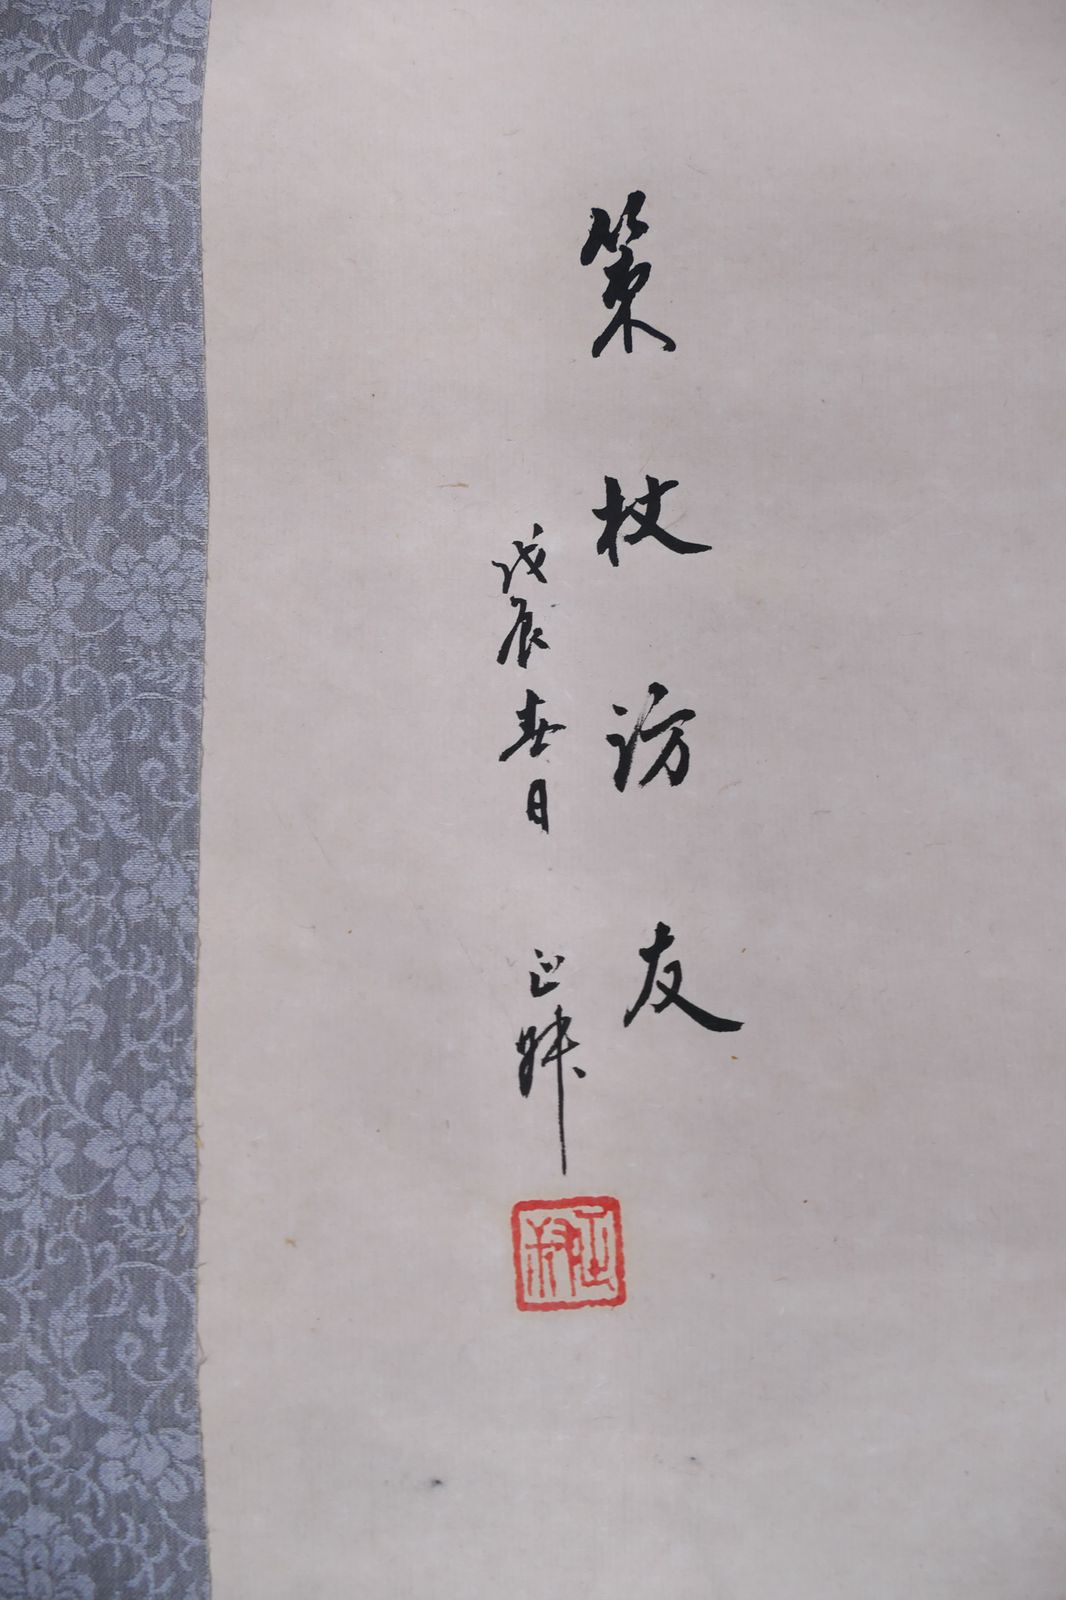 策杖访友
戊辰春日 正